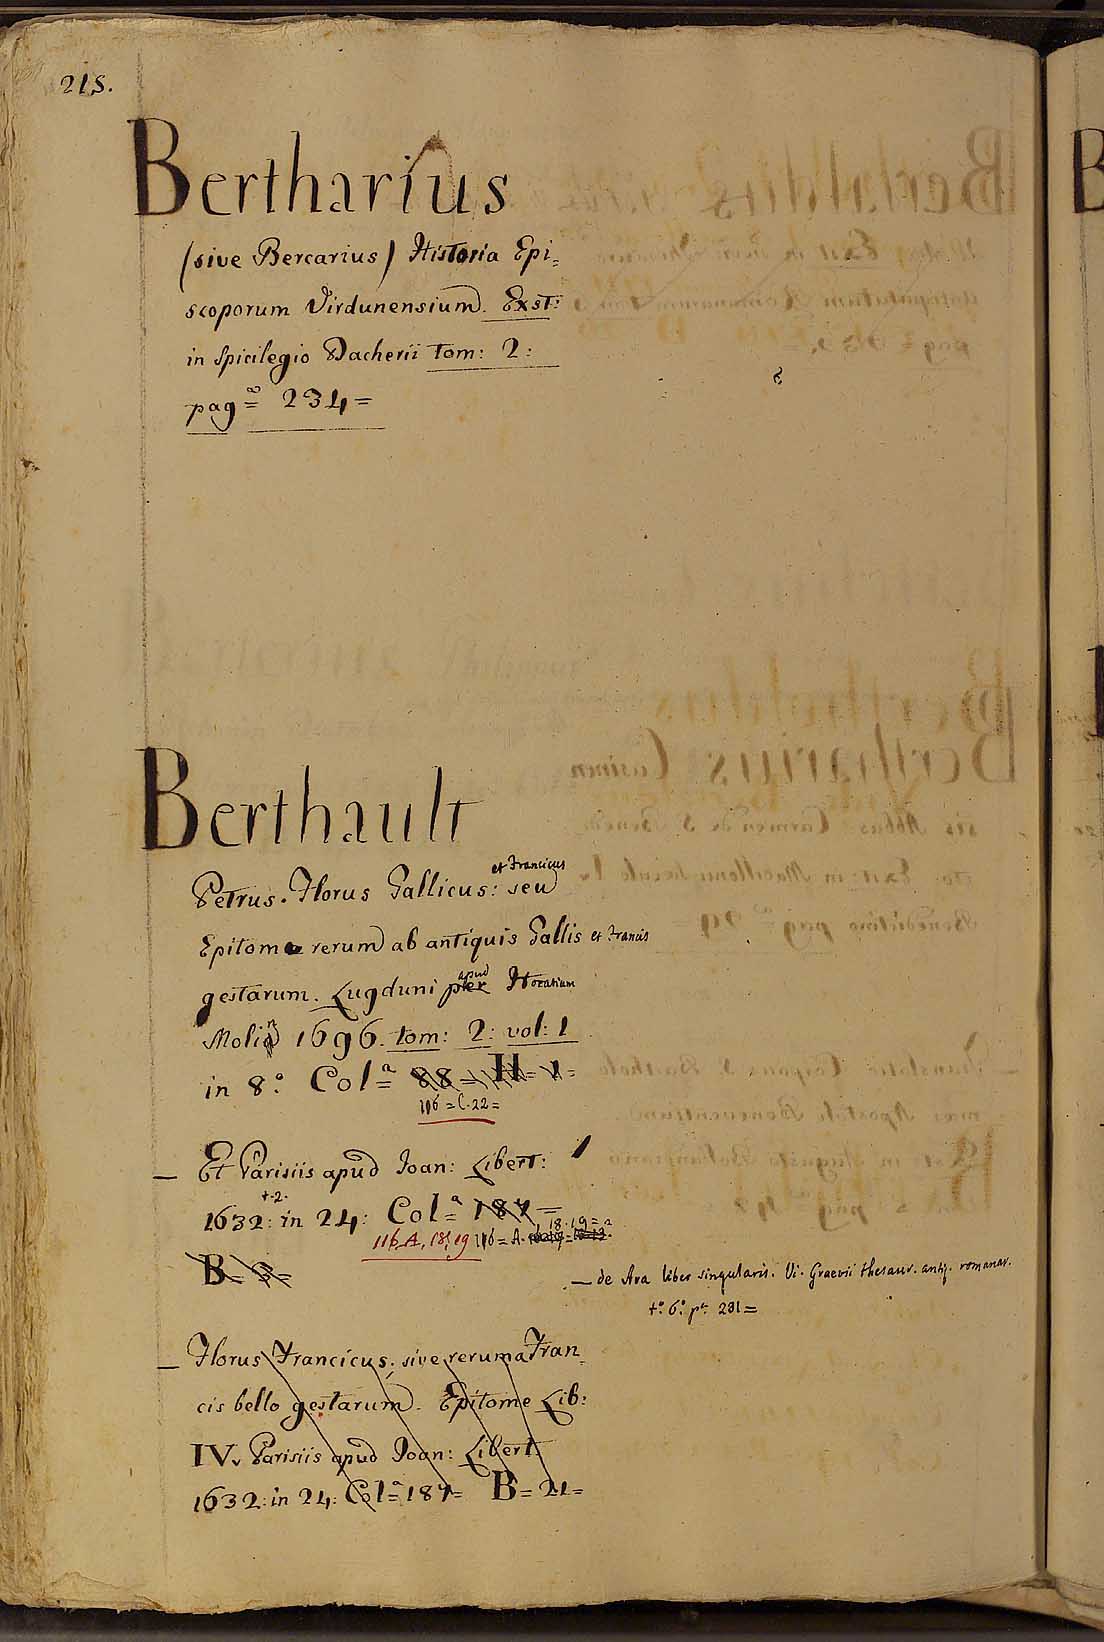 215.
Bertharius
(sive Bercarius) Historia Epi=
scoporum Virdunensium. Exst:
in Spicilegio Dacherii tom: 2:
pag.ª = 234=
Berthault
et Francicus
Petrus. Florus Gallicus: seu
Epitome rerum ab antiquis Gallis et Francis
apud
gestarum. Lugduni per Horatium
Molin 1696. tom: 2: vol: 1
in 8.º Col.ª 88= H= 1=
116=C.22=
— Et Parisiis apud Joan: Libert:
t.2.
1632: in 24: Col.ª 187=
116, A, 18, 19 116=A. 18.19=
B= 3=
— de Ara liber singularis. Vi. Graevii thesaur. antiq. romanar.
t.º 6.º p.ª 231=
— Florus Francicus; sive rerum a Fran=
cis bello gestarum. Epitome Lib:
IV. Parisiis apud Joan: Libert.
1632: in 24: Col.ª 187= B= 21=